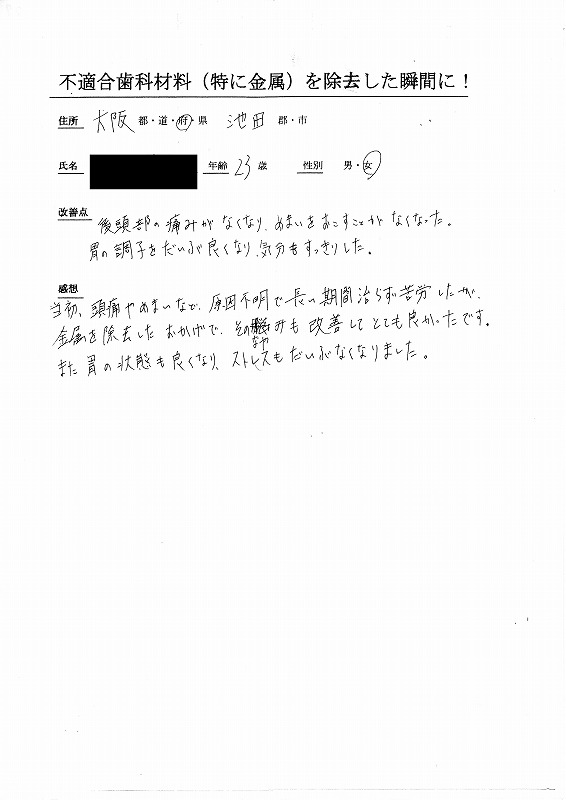 不適合歯科材料（特に金属）を除去した瞬間に！
住所 大阪 都・道・府・県 池田 郡・市
氏名 年齢 23 歳 性別 男・女
改善点
後頭部の痛みがなくなり、めまいをおこすことがなくなった。
胃の調子をだいぶ良くなり、気分もすっきりした。
感想
当初、頭痛やめまいなで、原因不明で長い期間治らず苦労したが、
金属を除去したおかげで、そのなやみも改善してとても良かったです。
また胃の状態も良くなり、ストレスもだいぶなくなりました。